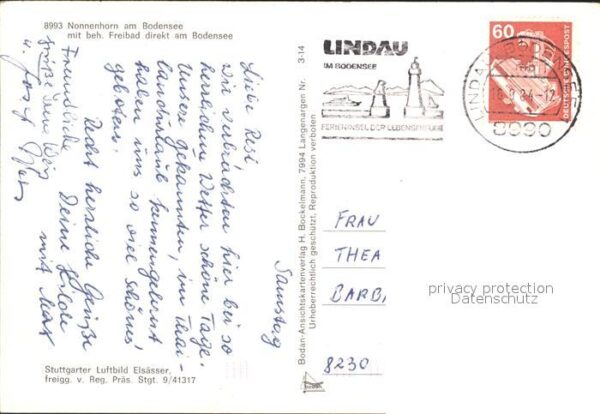 8993 Nonnenhorn am Bodensee
mit beh. Freibad direkt am Bodensee
Samstag
Liebe Resi
Wir verbrachten hier bei so
herrlichem Wetter schöne Tage.
Unsere Bekannten, im Thai-
landurlaub kennengelernt
haben uns so viel schönes
geboten.
Recht herzliche Grüße
Deine Hilde
mit Max
Freundliche
Grüße
Stuttgarter Luftbild Elsässer,
freigg. v. Reg. Präs. Stgt. 9/41317
Bodan-Ansichtskartenverlag H. Bockelmann, 7994 Langenargen Nr. 3-14
Urheberrechtlich geschützt. Reproduktion verboten
LINDAU
IM BODENSEE
FERIENINSEL DER LEBENSFREUDE
LINDAU
-12
8990
60
DEUTSCHE BUNDESPOST
FRAU
THEA
BARB
8230
privacy protection
Datenschutz